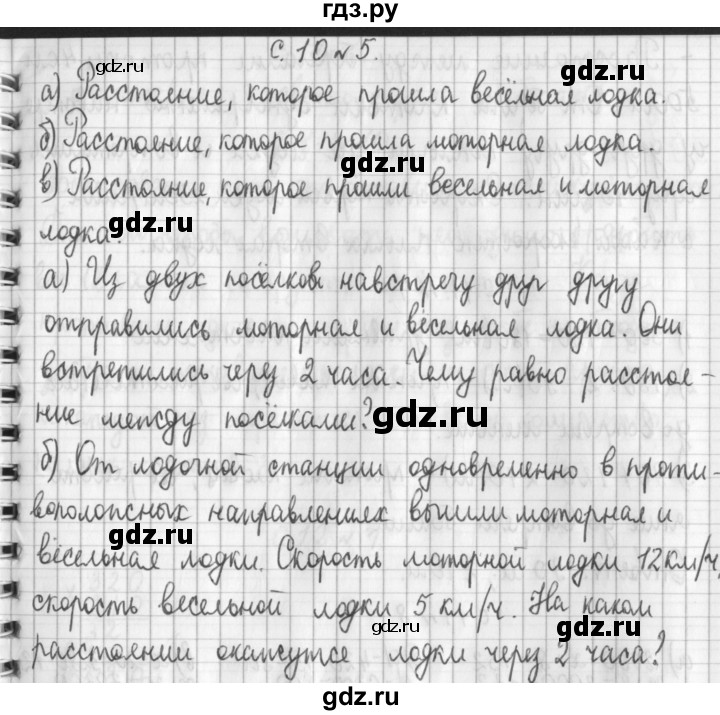 гдз.ру
с. 10 № 5.
gdz.ru
а) Расстояние, которое прошла весельная лодка.
gdz.ru
б) Расстояние, которое прошла моторная лодка.
gdz.ru
в) Расстояние, которое прошли весельная и моторная
gdz.ru
лодка.
а) Из двух посёлков навстречу друг другу
gdz.ru
отправились моторная и весельная лодка. Они
встретились через 2 часа. Чему равно расстоя-
gdz.ru
ние между посёлками?
б) От лодочной станции одновременно в проти-
gdz.ru
воположных направлениях вышли моторная и
gdz.ru
весельная лодки. Скорость моторной лодки 12 км/ч,
скорость весельной лодки 5 км/ч. На каком
gdz.ru
gdz.ru
расстоянии окажутся лодки через 2 часа?
gdz.ru
gdz.ru